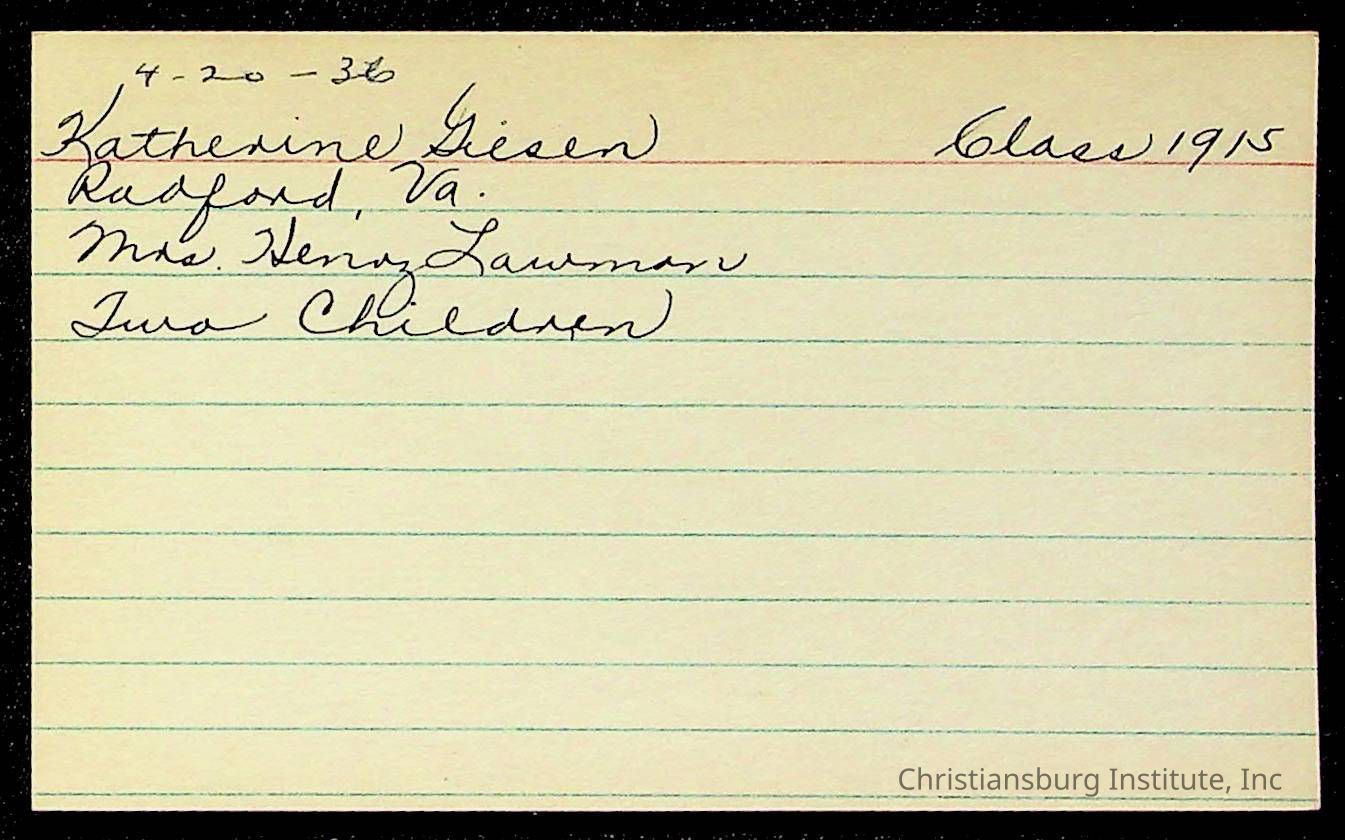 4-20-36
Katherine Giesen Class 1915
Radford, Va.
Mrs. Henry Lawman
Two Children
Christiansburg Institute, Inc